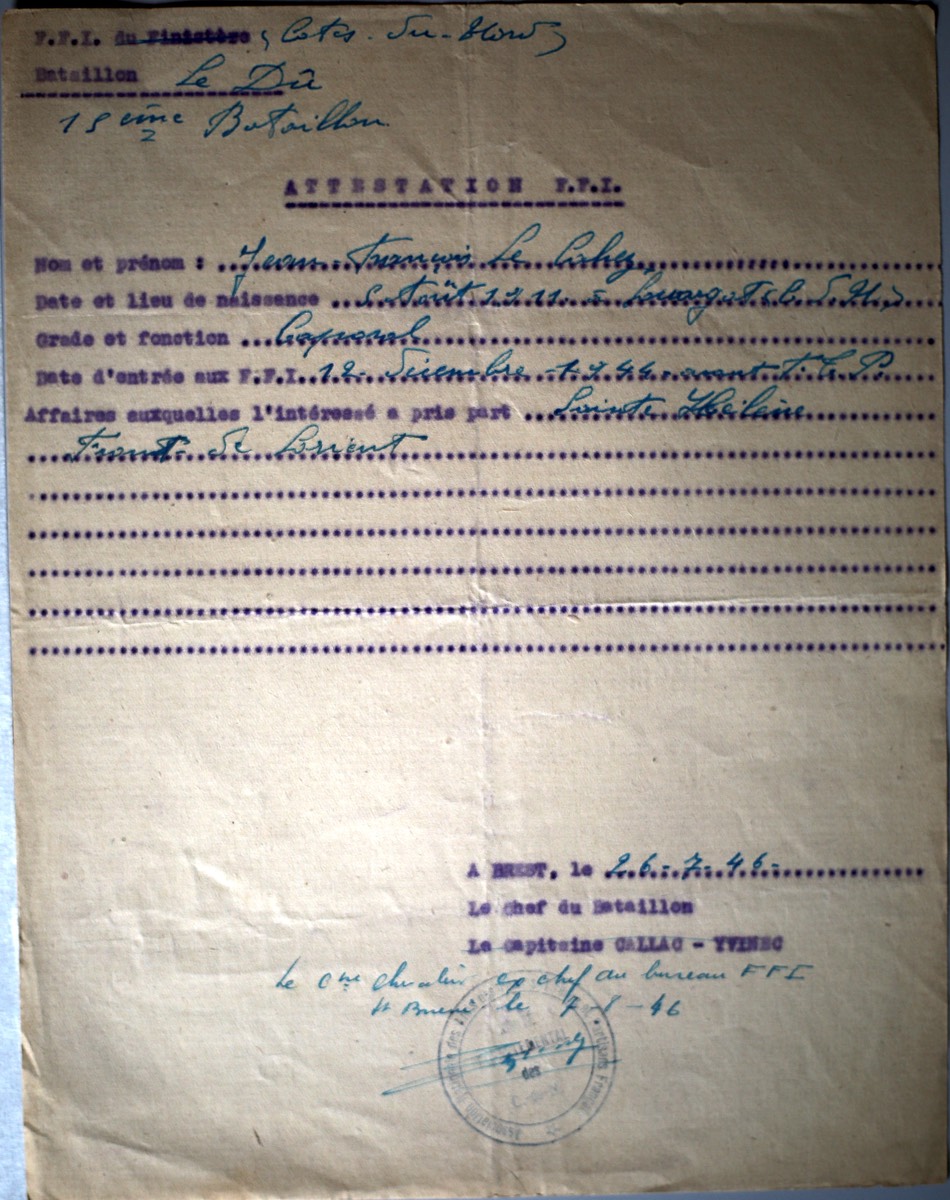 F.F.I. du Finistère (Côtes-du-Nord)
Bataillon Le Dû
15ème Bataillon
ATTESTATION F.F.I.
Nom et prénom : Jean-François Le
Date et lieu de naissance Août 1911 = Louargat (C. d. N.)
Grade et fonction Caporal
Date d'entrée aux F.F.I. 12 Décembre 1944 - avant F.T.P.
Affaires auxquelles l'intéressé a pris part Sainte Hélène
Front de Lorient
A BREST, le 26-7-46-
Le Chef du Bataillon
Le Capitaine CALLAC - YVINEC
Le Cne Chevalier ex chef du bureau FFI
St Brieuc le 7-8-46
des